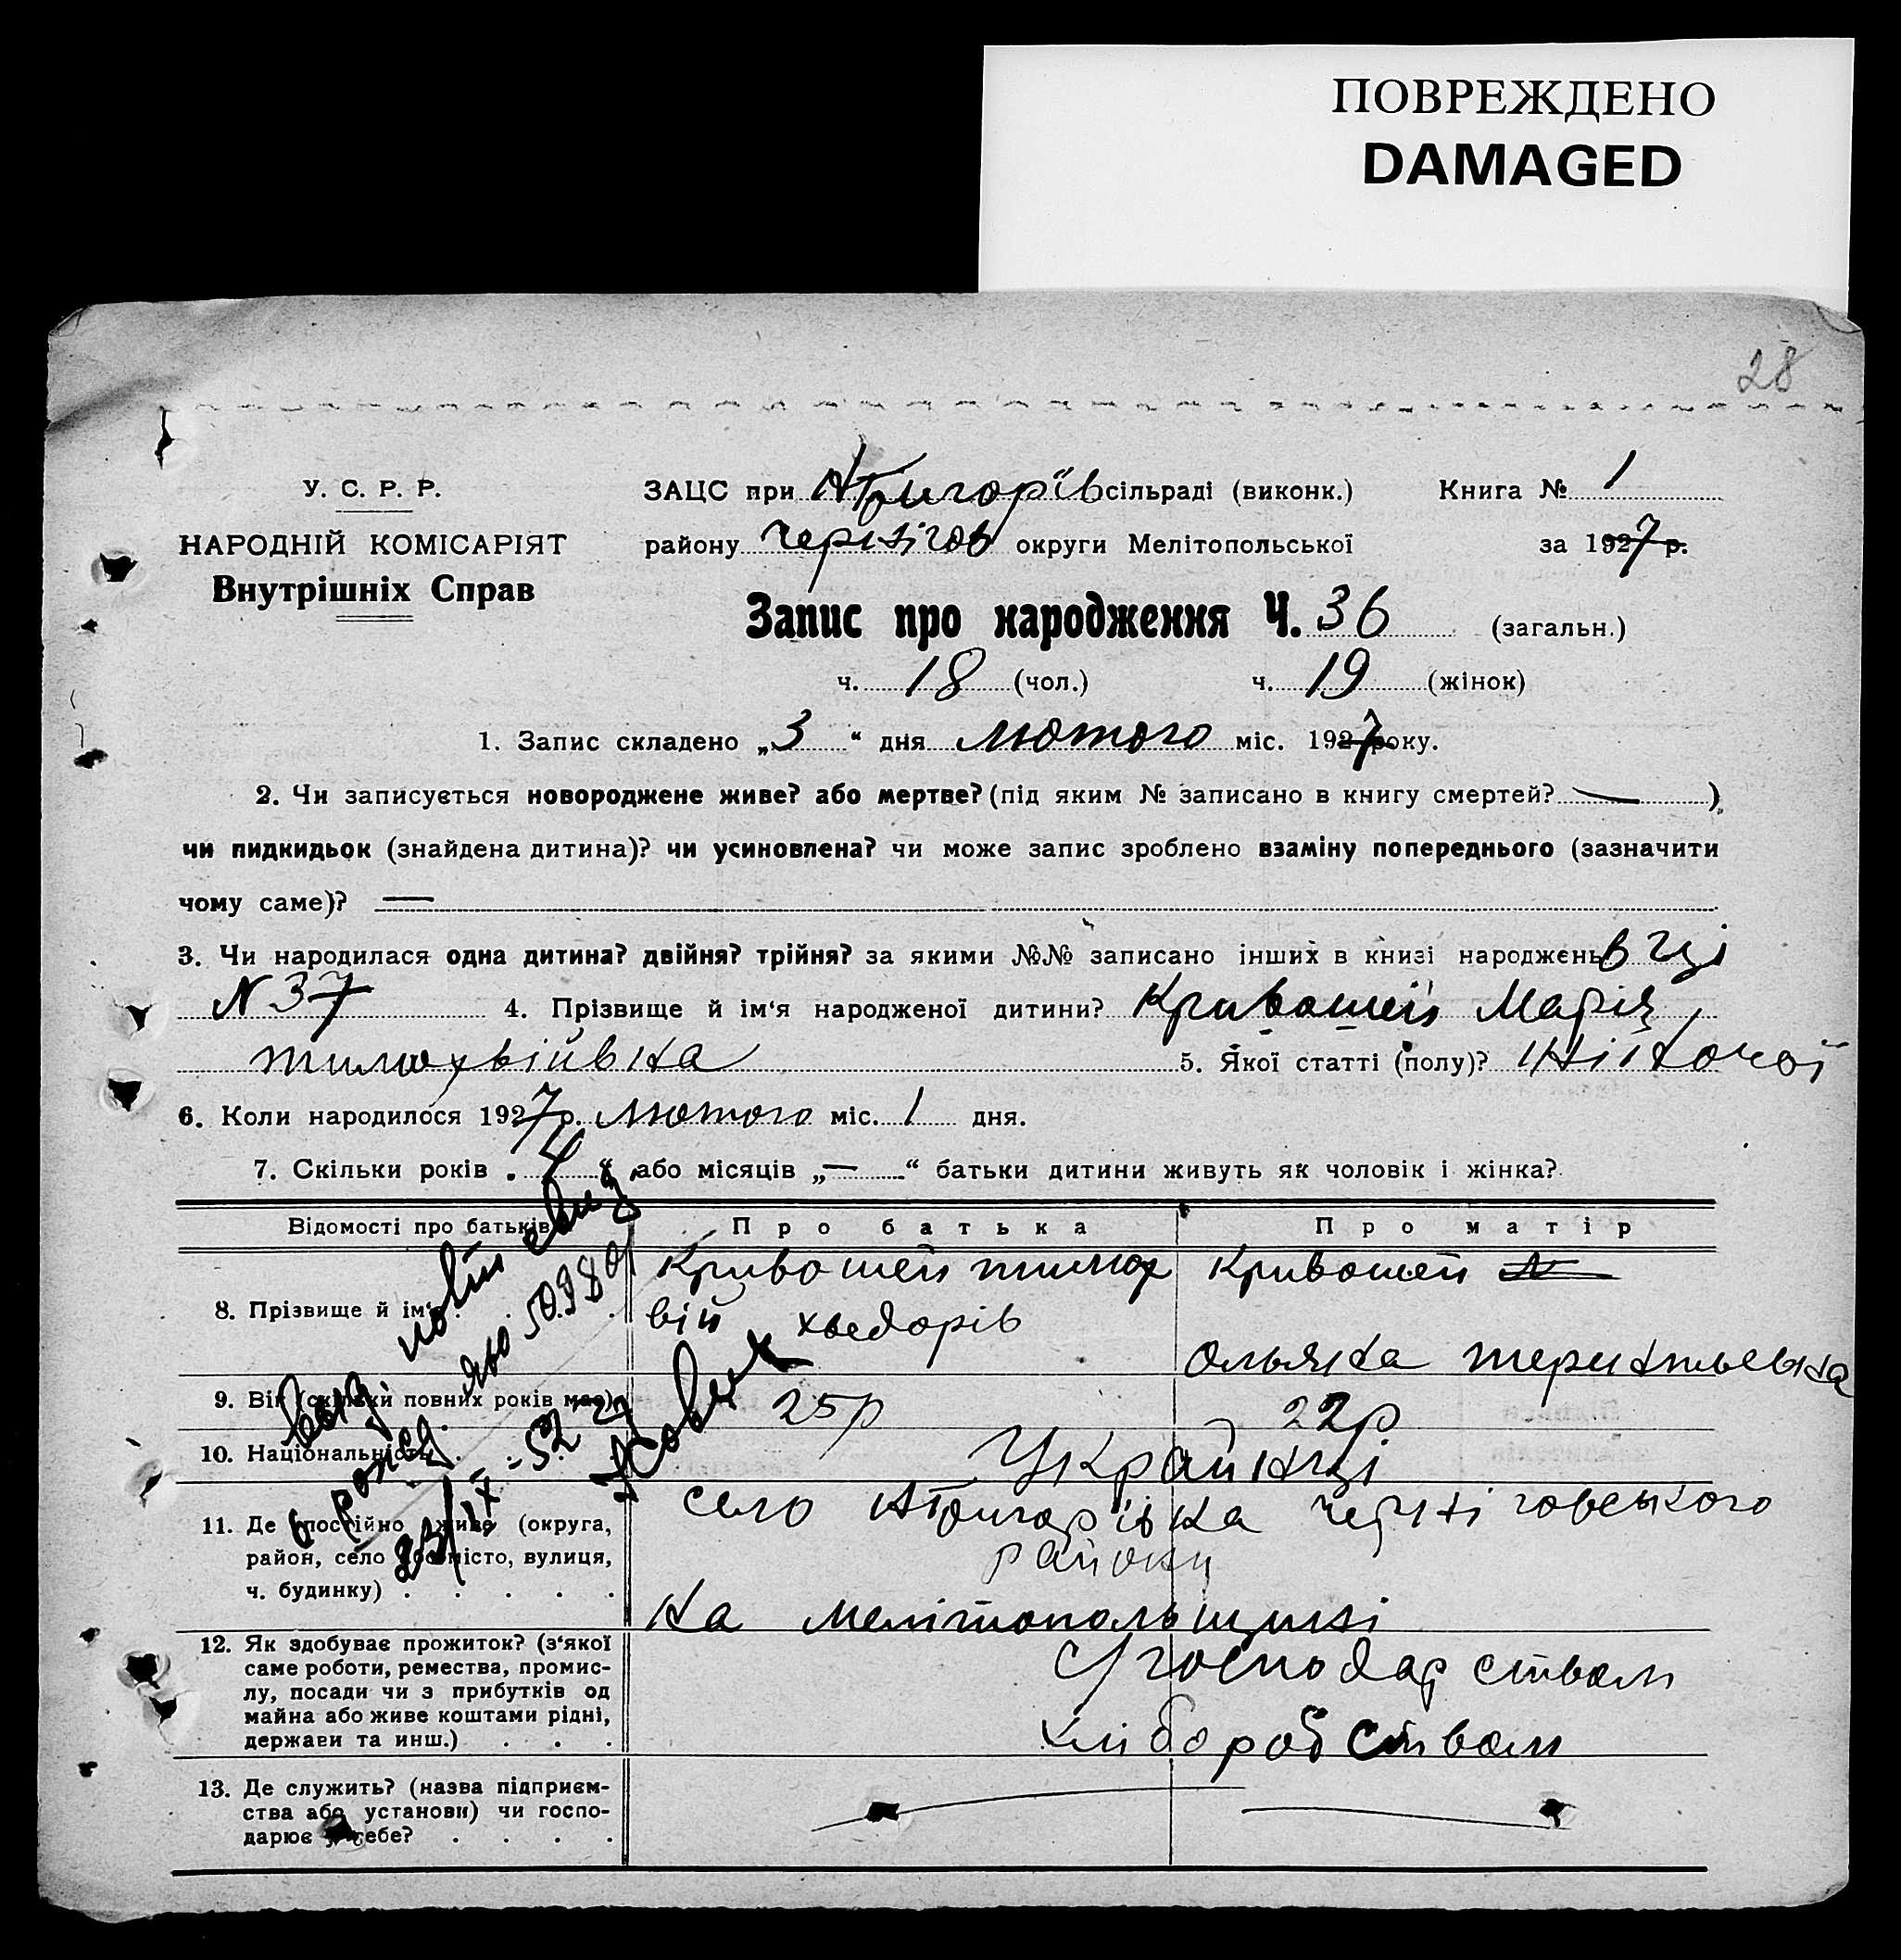 ПОВРЕЖДЕНО
DAMAGED
28
У. С. Р. Р.
НАРОДНІЙ КОМІСАРІЯТ
Внутрішніх Справ
ЗАЦС при Н Григорїв сільраді (виконк.) Книга № 1
району Чернігов округи Мелітопольської за 1927 р.
Запис про народження Ч. 36 (загальн.)
ч. 18 (чол.) ч. 19 (жінок)
1. Запис складено „3“ дня лютого міс. 1927 року.
2. Чи записується новороджене живе? або мертве? (під яким № записано в книгу смертей? — )
чи пидкидьок (знайдена дитина)? чи усиновлена? чи може запис зроблено взаміну попереднього (зазначити
чому саме)? —
3. Чи народилася одна дитина? двійня? трійня? за якими №№ записано інших в книзі народжень
N 37 4. Прізвище й ім‘я народженої дитини? Кривошей Марія
тимохвіївна 5. Якої статті (полу)? жіночої
6. Коли народилося 1927 р. лютого міс. 1 дня.
7. Скільки років „4“ або місяців „—“ батьки дитини живуть як чоловік і жінка?
Відомості про батьків Про батька Про матір
8. Прізвище й ім‘я . . . Кривошей тимох Кривошей
вій хведорів
ольяна терентьевна
9. Вік (скільки повних років має) 25р 22р
10. Національність . Українці
11. Де постійно живе (округа, село Н Григорівка чернiговського
район, село або місто, вулиця, району
ч. будинку) . . . . . на мелітопольщині
12. Як здобуває прожиток? (з‘якої господарством
саме роботи, ремества, промис-
лу, посади чи з прибутків од
майна або живе коштами рідні, хліборобством
держави та инш.) . . .
13. Де служить? (назва підприєм-
ства або установи) чи госпо-
дарює у себе? . . . .
50980
23/IX-52